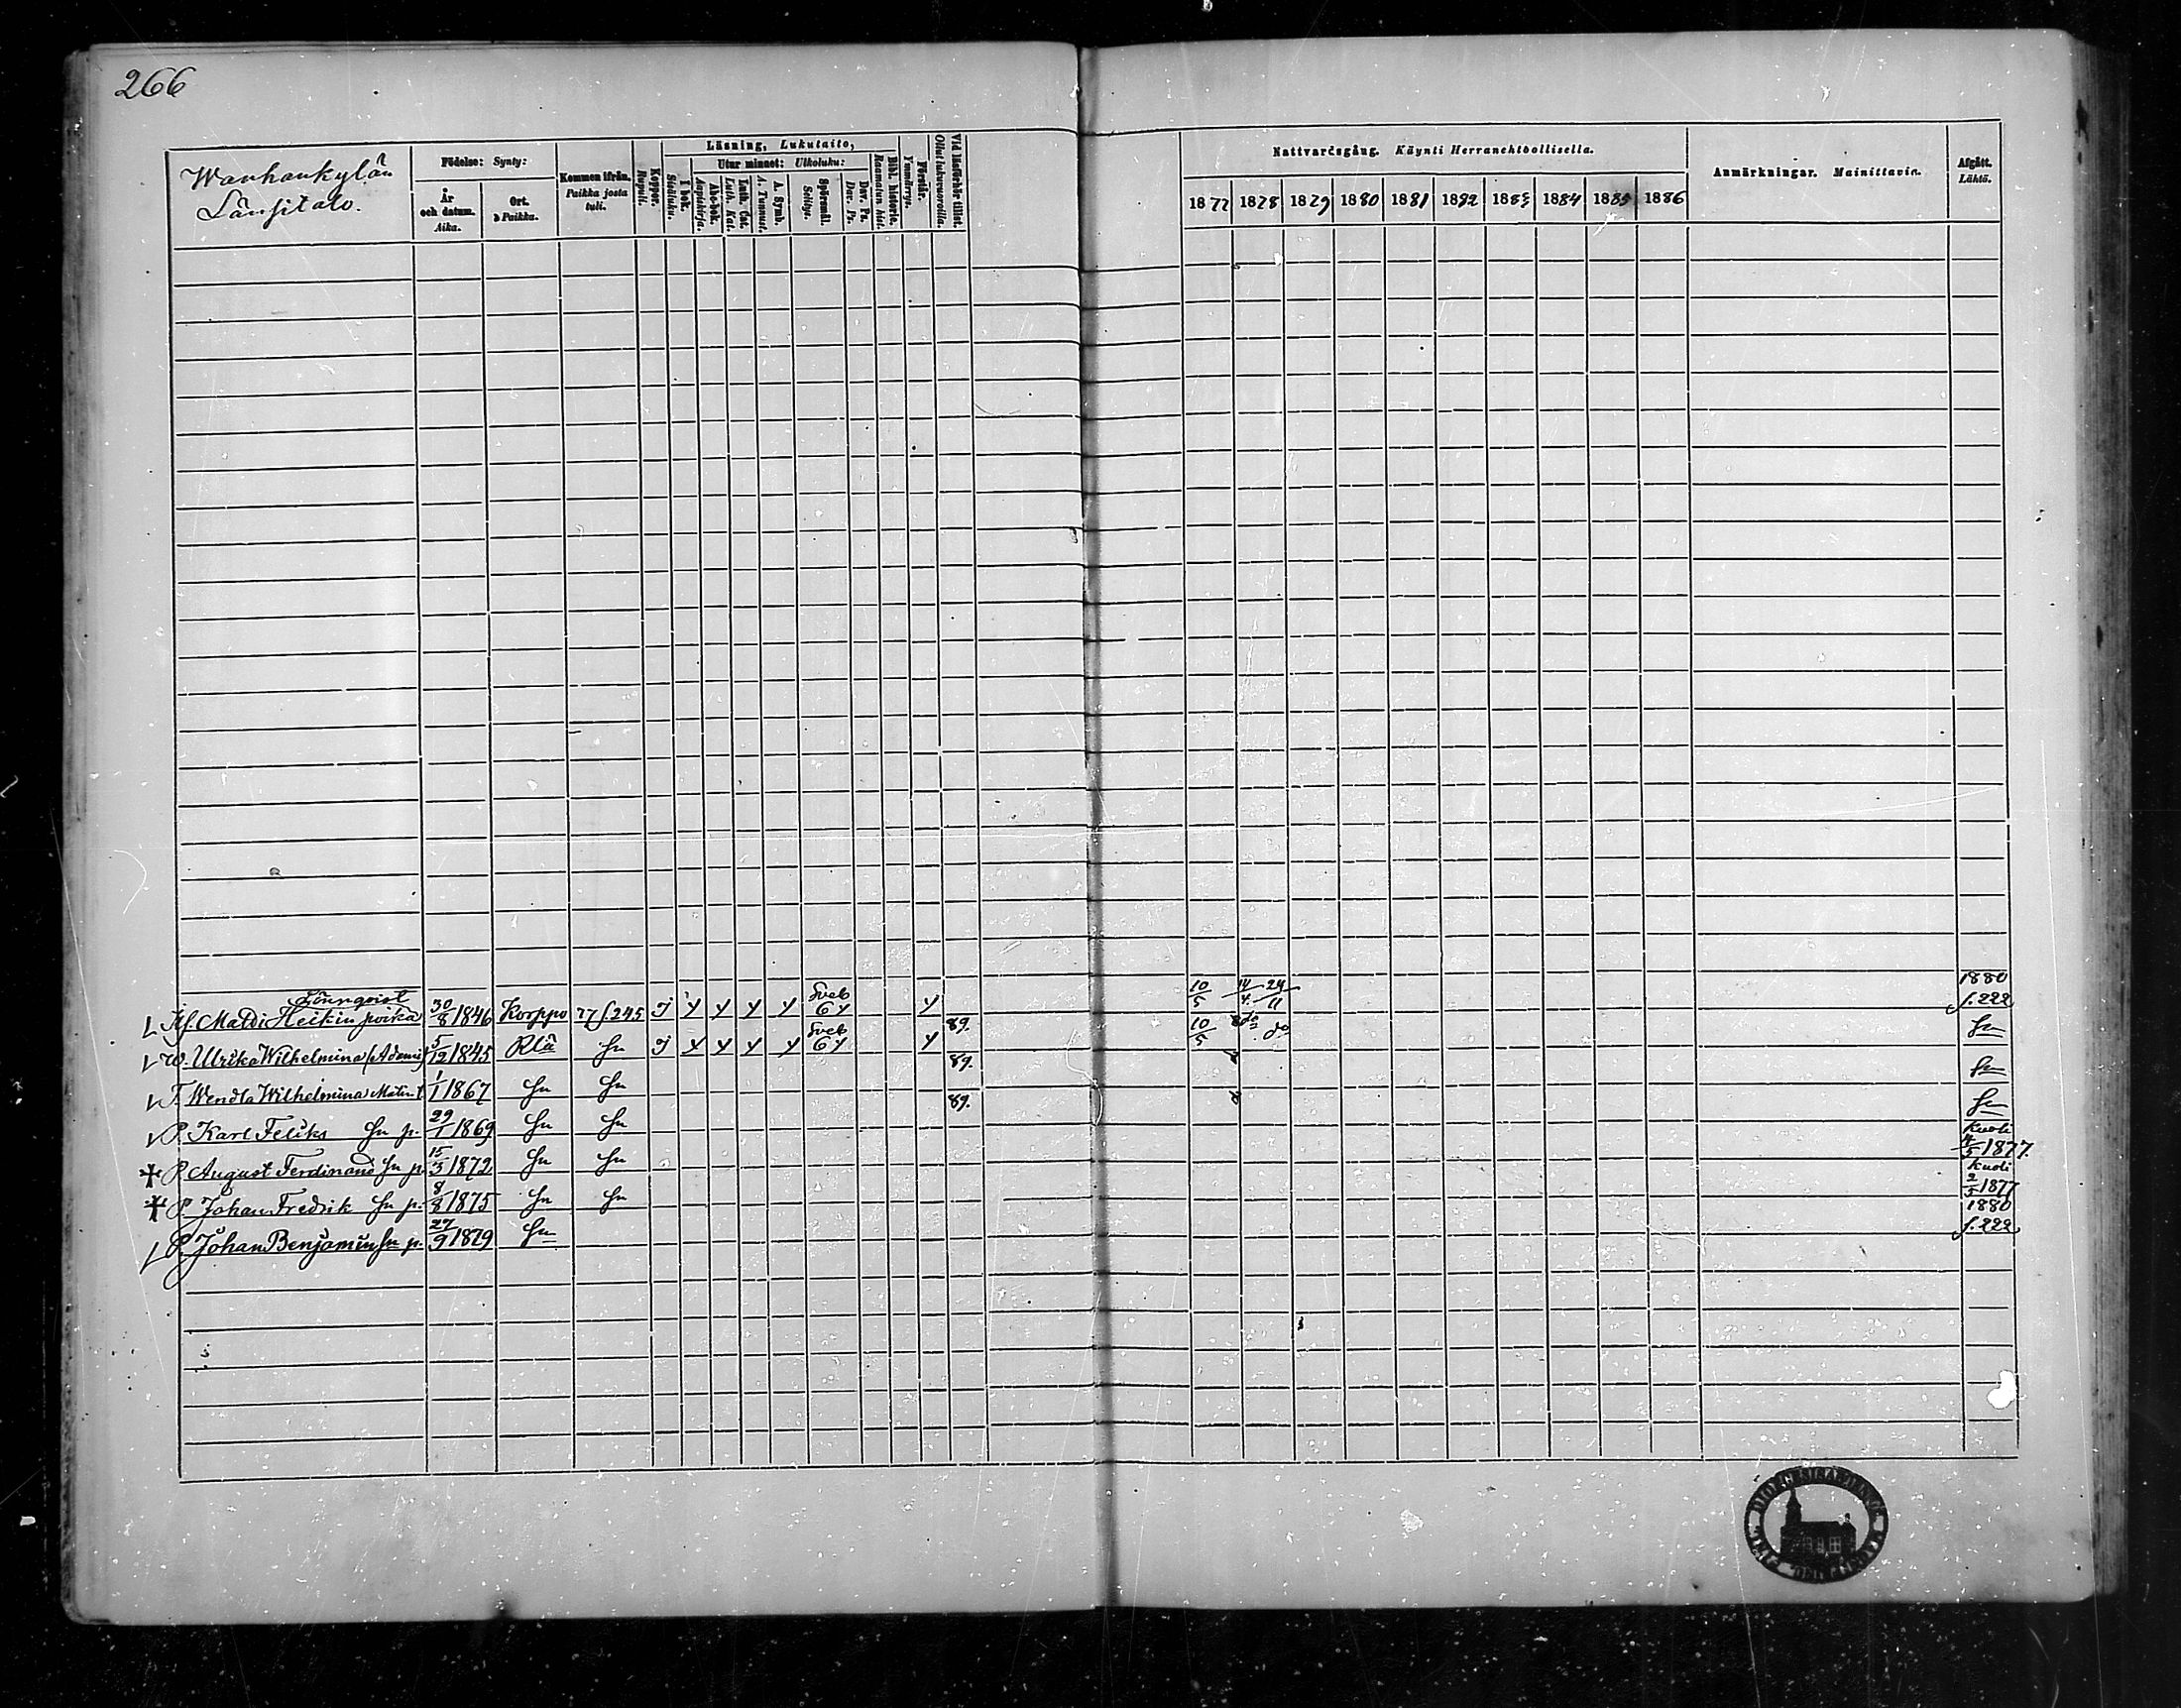 266
Wanhankylän
Länsitalo.
Födelse: Synty:
År och datum. Aika.
Ort. Paikka.
Kommen ifrån. Paikka josta tuli.
Koppor. Rupuli.
Läsning, Lukutaito,
I bok. Sisäluku.
Utur minnet: Ulkoluku:
Abc-bok. Aapiskirja.
Luth. Cat. Luth. Kat.
A. Symb. A. Tunnust.
Spörsmål. Selitys.
Dav. Ps. Dav. Ps.
Bibl. historia. Raamatun hist.
Förstår. Ymmärrys.
Vid läsförhör tillst. Ollut lukuvuoroilla.
Nattvardsgång. Käynti Herranehtoollisella.
1877 1878 1879 1880 1881 1882 1883 1884 1885 1886
Anmärkningar. Mainittavia.
Afgått. Lähtö.
Lönnqvist Sveb 10/5 14/4 24/11 1880
Matti Heikin poika 30/8 1846 Korppo 77 f. 245 J y y y y 6 y y f. 222
89.
Sveb 10/5 do do
W. Ulrika Wilhelmina (Adami) 5/12 1845 Rlä Sn J y y y y 6 y y Sn
89.
T. Wendla Wilhelmina Matin t. 1/1 1867 Sn Sn Sn
89.
P. Karl Feliks Sn p. 29/1 1869 Sn Sn Sn
P. August Ferdinand Sn p. 15/3 1872 Sn Sn Kuoli 4/5 1877.
P. Johan Fredrik Sn p. 8/8 1875 Sn Sn Kuoli 2/5 1877
P. Johan Benjamin Sn p. 27/9 1879 Sn 1880 f. 222